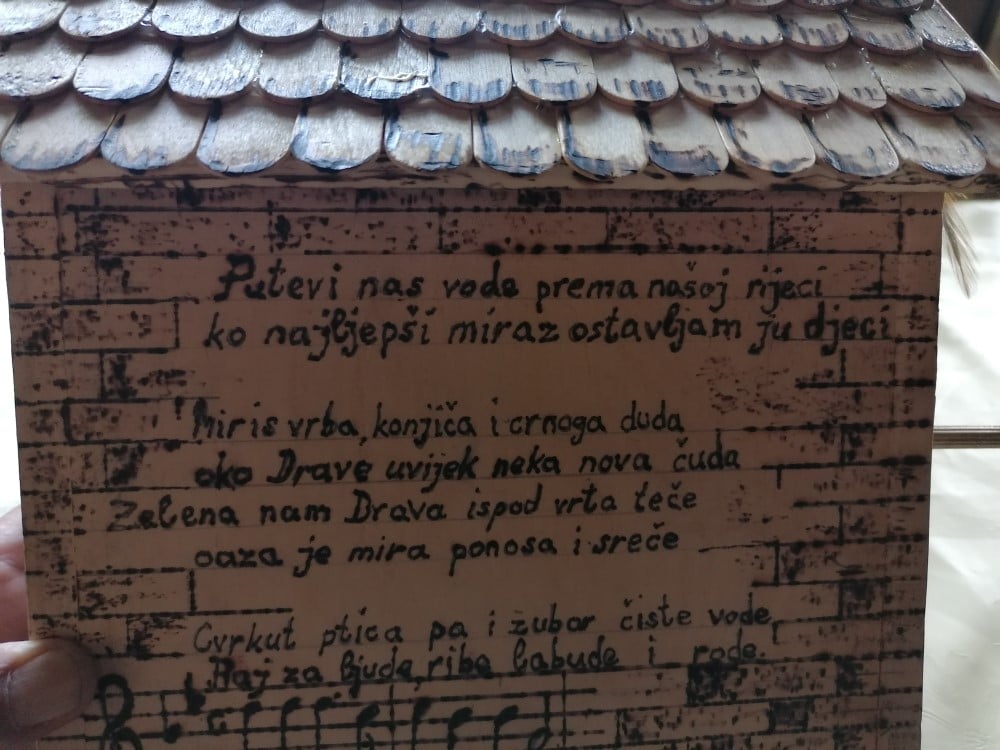 Putevi nas vode prema našoj rijeci
ko najljepši miraz ostavljam ju djeci
Miris vrba, konjiča i crnoga duda
oko Drave uvijek neka nova čuda
Zelena nam Drava ispod vrta teče
oaza je mira ponosa i sreče
Cvrkut ptica pa i žubor čiste vode,
Raj za ljude, ribe labude i rode.